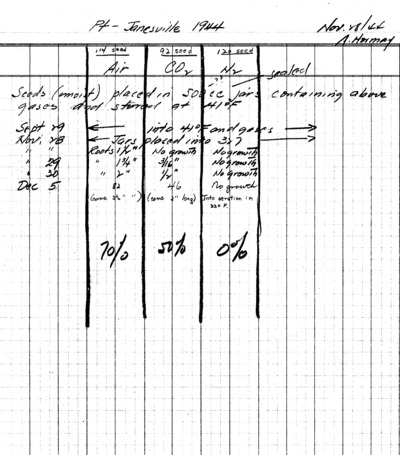 Pt - Janesville 1944 Nov. 28/44
A. Hormay
114 seed 92 seed 120 seed
Air CO2 N2 sealed
Seeds (moist) placed in 500 cc jars containing above
gases and stored at 41°F
Sept 29 into 41°F and gases
Nov. 28 Jars placed into 32?
" " Roots 1½" No growth No growth
" 29 " 1¾" 3/16" No growth
" 30 " 2" ½" No growth
Dec 5 82 46 No growth
(some 3½" ") (some 2" long) Into aeration in
70% 50% 0%